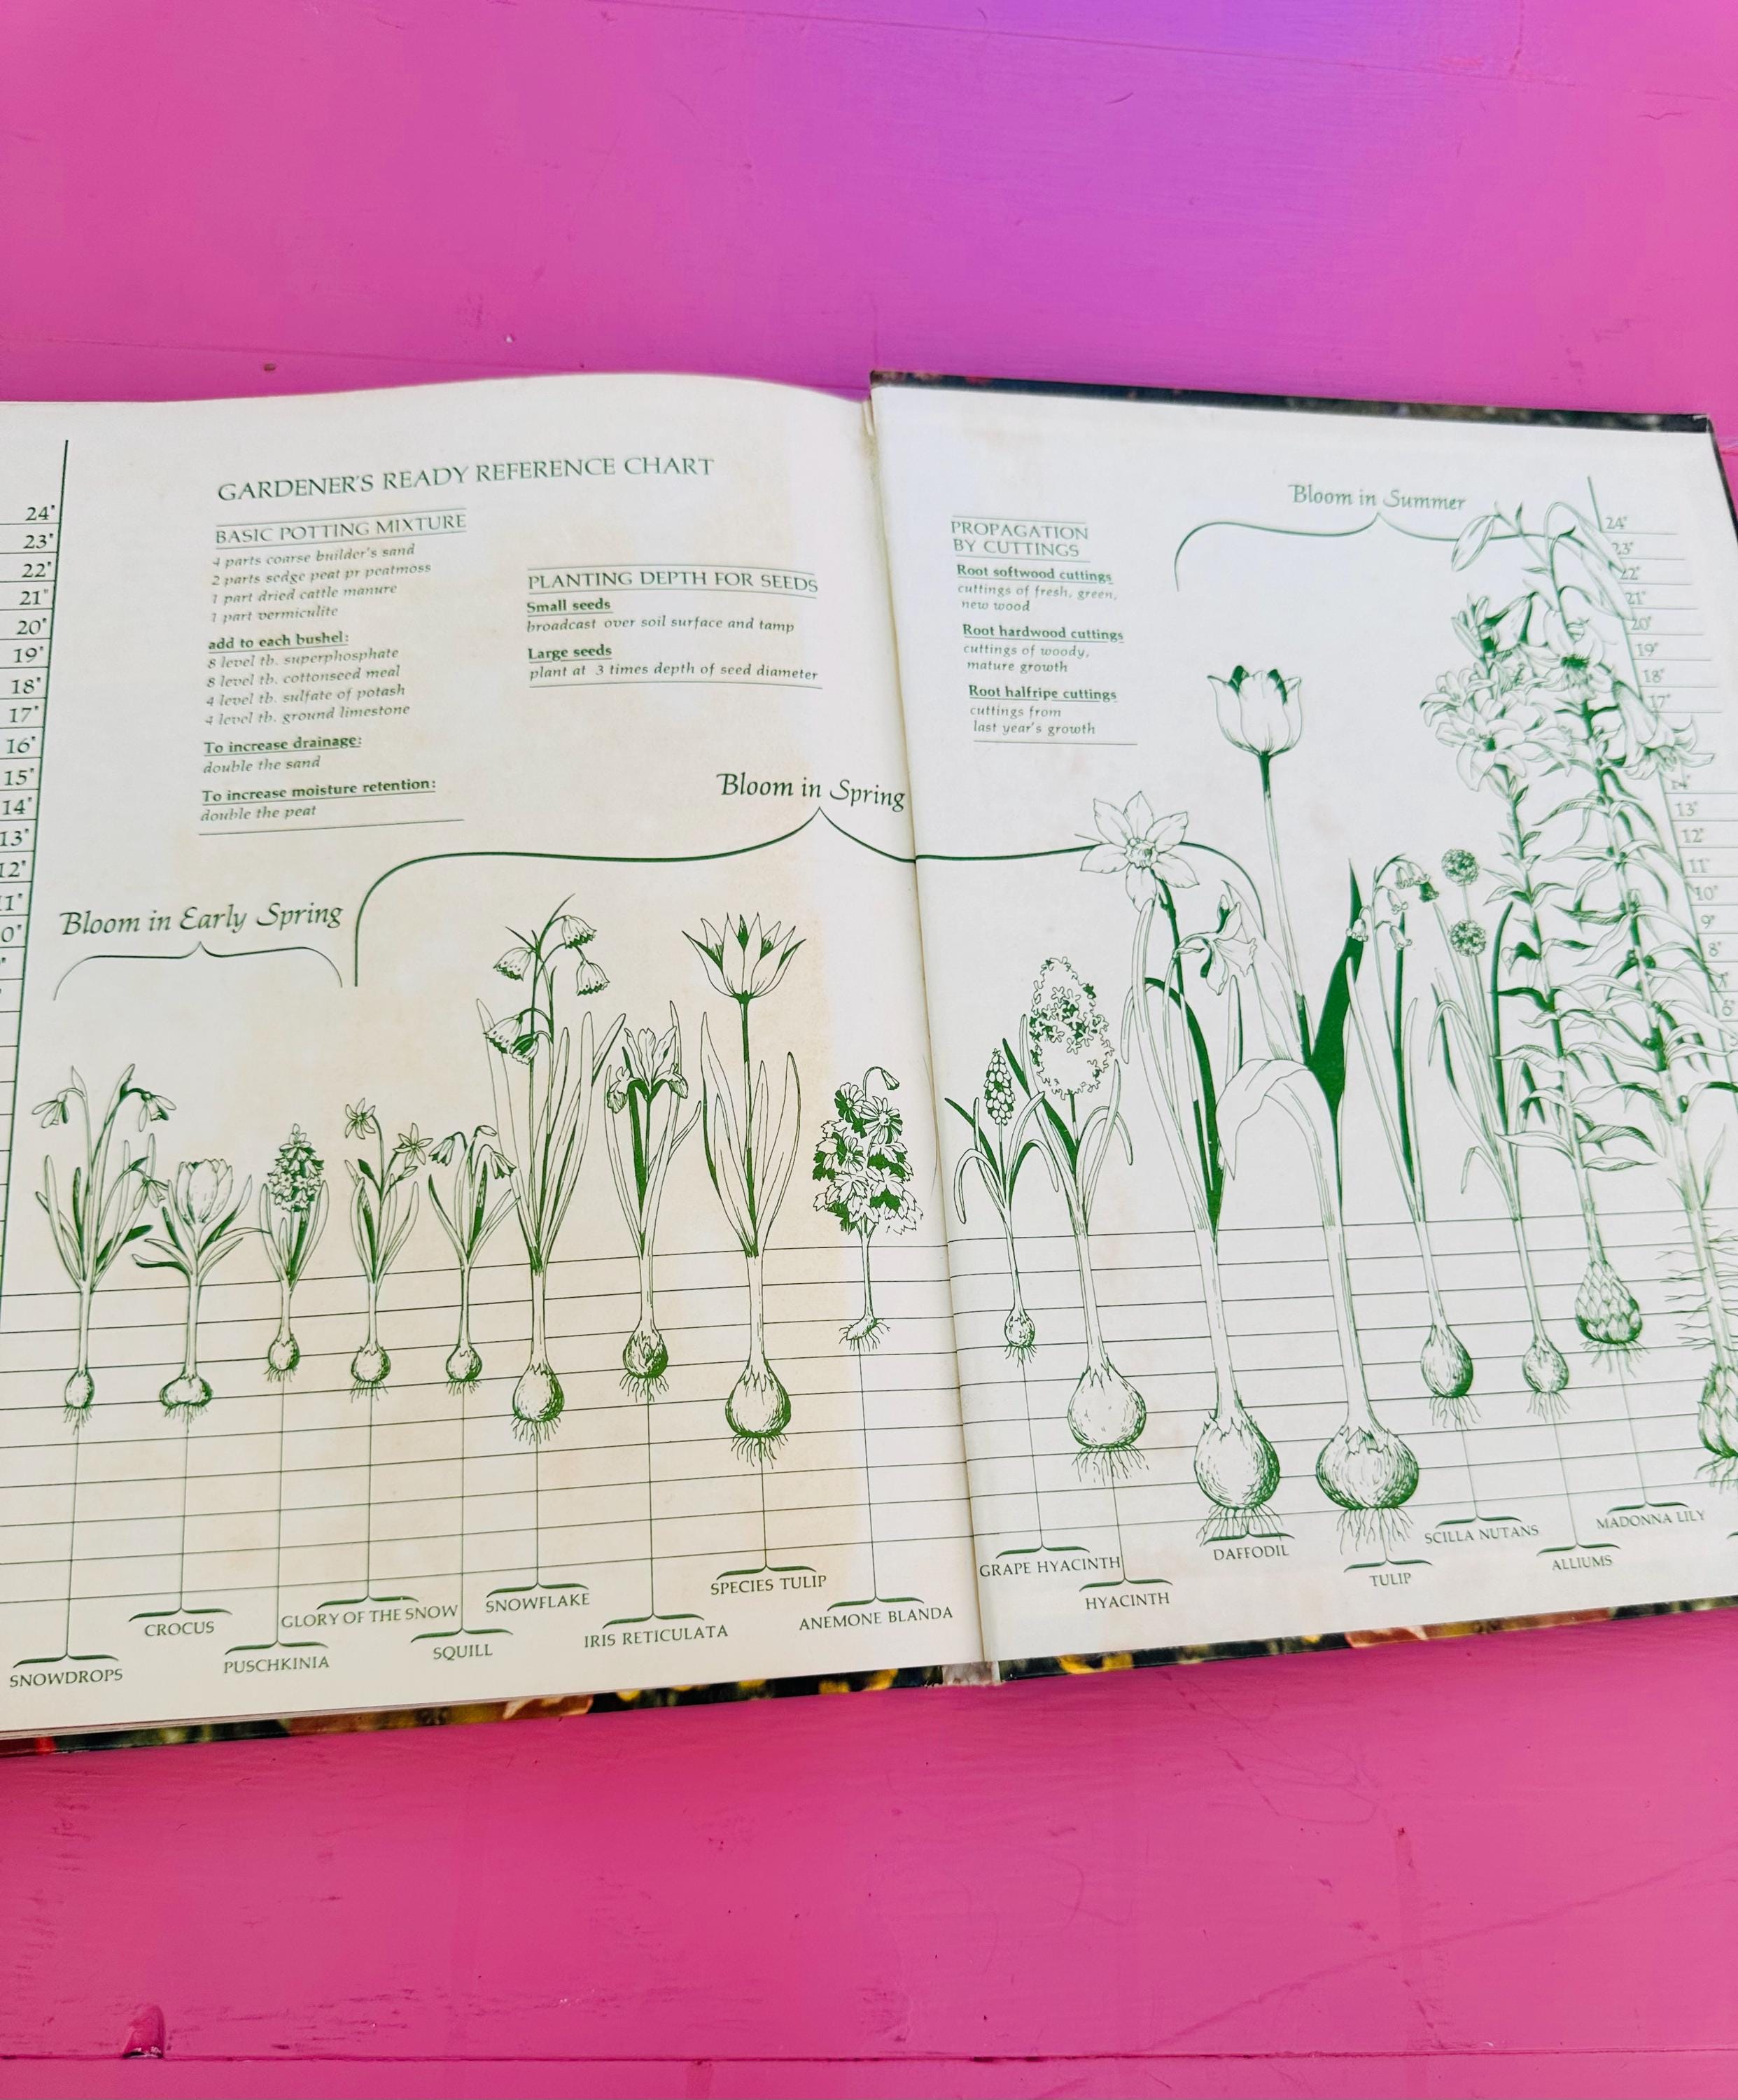 GARDENER'S READY REFERENCE CHART
BASIC POTTING MIXTURE
4 parts coarse builder's sand
2 parts sedge peat pr peatmoss
1 part dried cattle manure
1 part vermiculite
add to each bushel:
8 level tb. superphosphate
8 level tb. cottonseed meal
4 level tb. sulfate of potash
4 level tb. ground limestone
To increase drainage:
double the sand
To increase moisture retention:
double the peat
PLANTING DEPTH FOR SEEDS
Small seeds
broadcast over soil surface and tamp
Large seeds
plant at 3 times depth of seed diameter
24"
23"
22"
21"
20"
19"
18"
17"
16"
15"
14"
13"
12"
Bloom in Early Spring
Bloom in Spring
SNOWDROPS
CROCUS
PUSCHKINIA
GLORY OF THE SNOW
SQUILL
SNOWFLAKE
IRIS RETICULATA
SPECIES TULIP
ANEMONE BLANDA
PROPAGATION
BY CUTTINGS
Root softwood cuttings
cuttings of fresh, green,
new wood
Root hardwood cuttings
cuttings of woody,
mature growth
Root halfripe cuttings
cuttings from
last year's growth
Bloom in Summer
24"
23"
22"
21"
20"
19"
18"
17"
14"
13"
12"
11"
10"
9"
8"
GRAPE HYACINTH
HYACINTH
DAFFODIL
TULIP
SCILLA NUTANS
ALLIUMS
MADONNA LILY